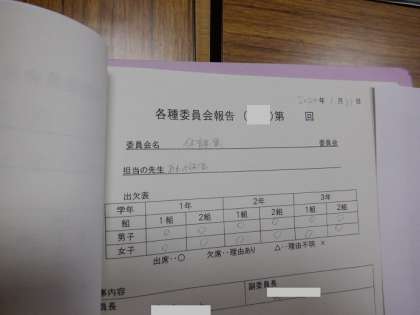 年 月 日
各種委員会報告 ( )第 回
委員会名 委員会
担当の先生
出欠表
学年 1年 2年 3年
組 1組 2組 1組 2組 1組 2組
男子 ○ ○ ○ ○ ○ ○
女子 ○ ○ ○ ○ ○ ○
出席‥○ 欠席‥理由あり △‥理由不明 ×
事内容
員長 副委員長